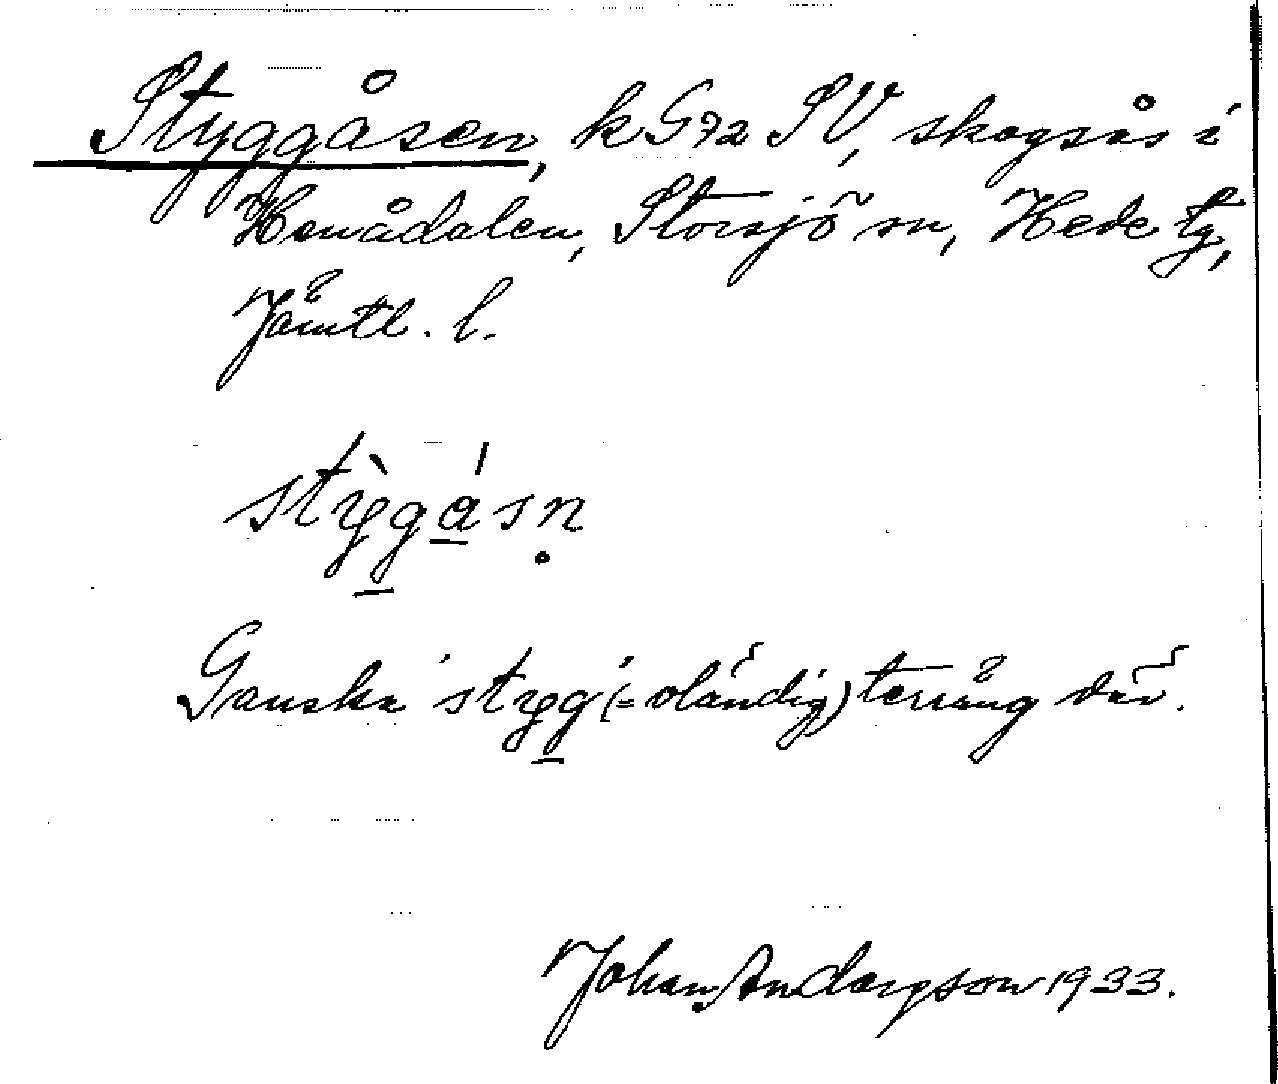 Styggåsen, k G72 SV, skogsås i
Henådalen, Storsjö sn, Hede tg,
Jämtl. l.
stỳgásn̥
Ganska styg (= oländig) terräng där.
Johan Andersson 1933.